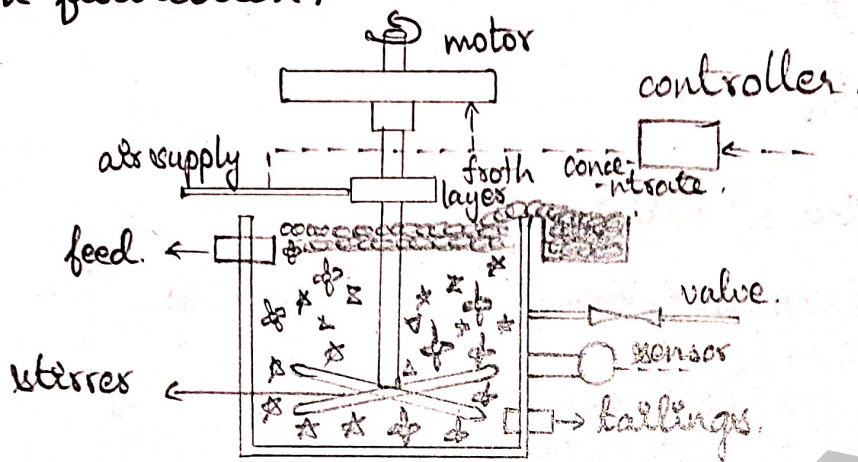 motor
controller.
air supply
froth
layer
conce-
-ntrate.
feed.
valve.
sensor
stirrer
tailings.